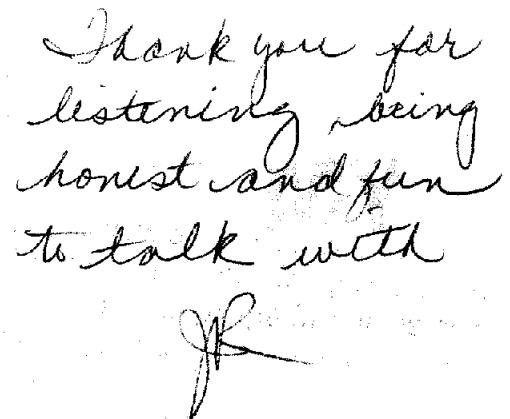 Thank you for
listening, being
honest and fun
to talk with